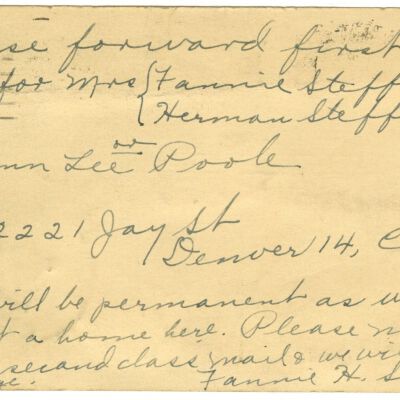 se forward first
for Mrs { Fannie Steff
{ Herman Steff
or
nn Lee Poole
2221 Jay St
Denver 14, C
ill be permanent as w
t a home here. Please
second class mail & we wi
Fannie H. S